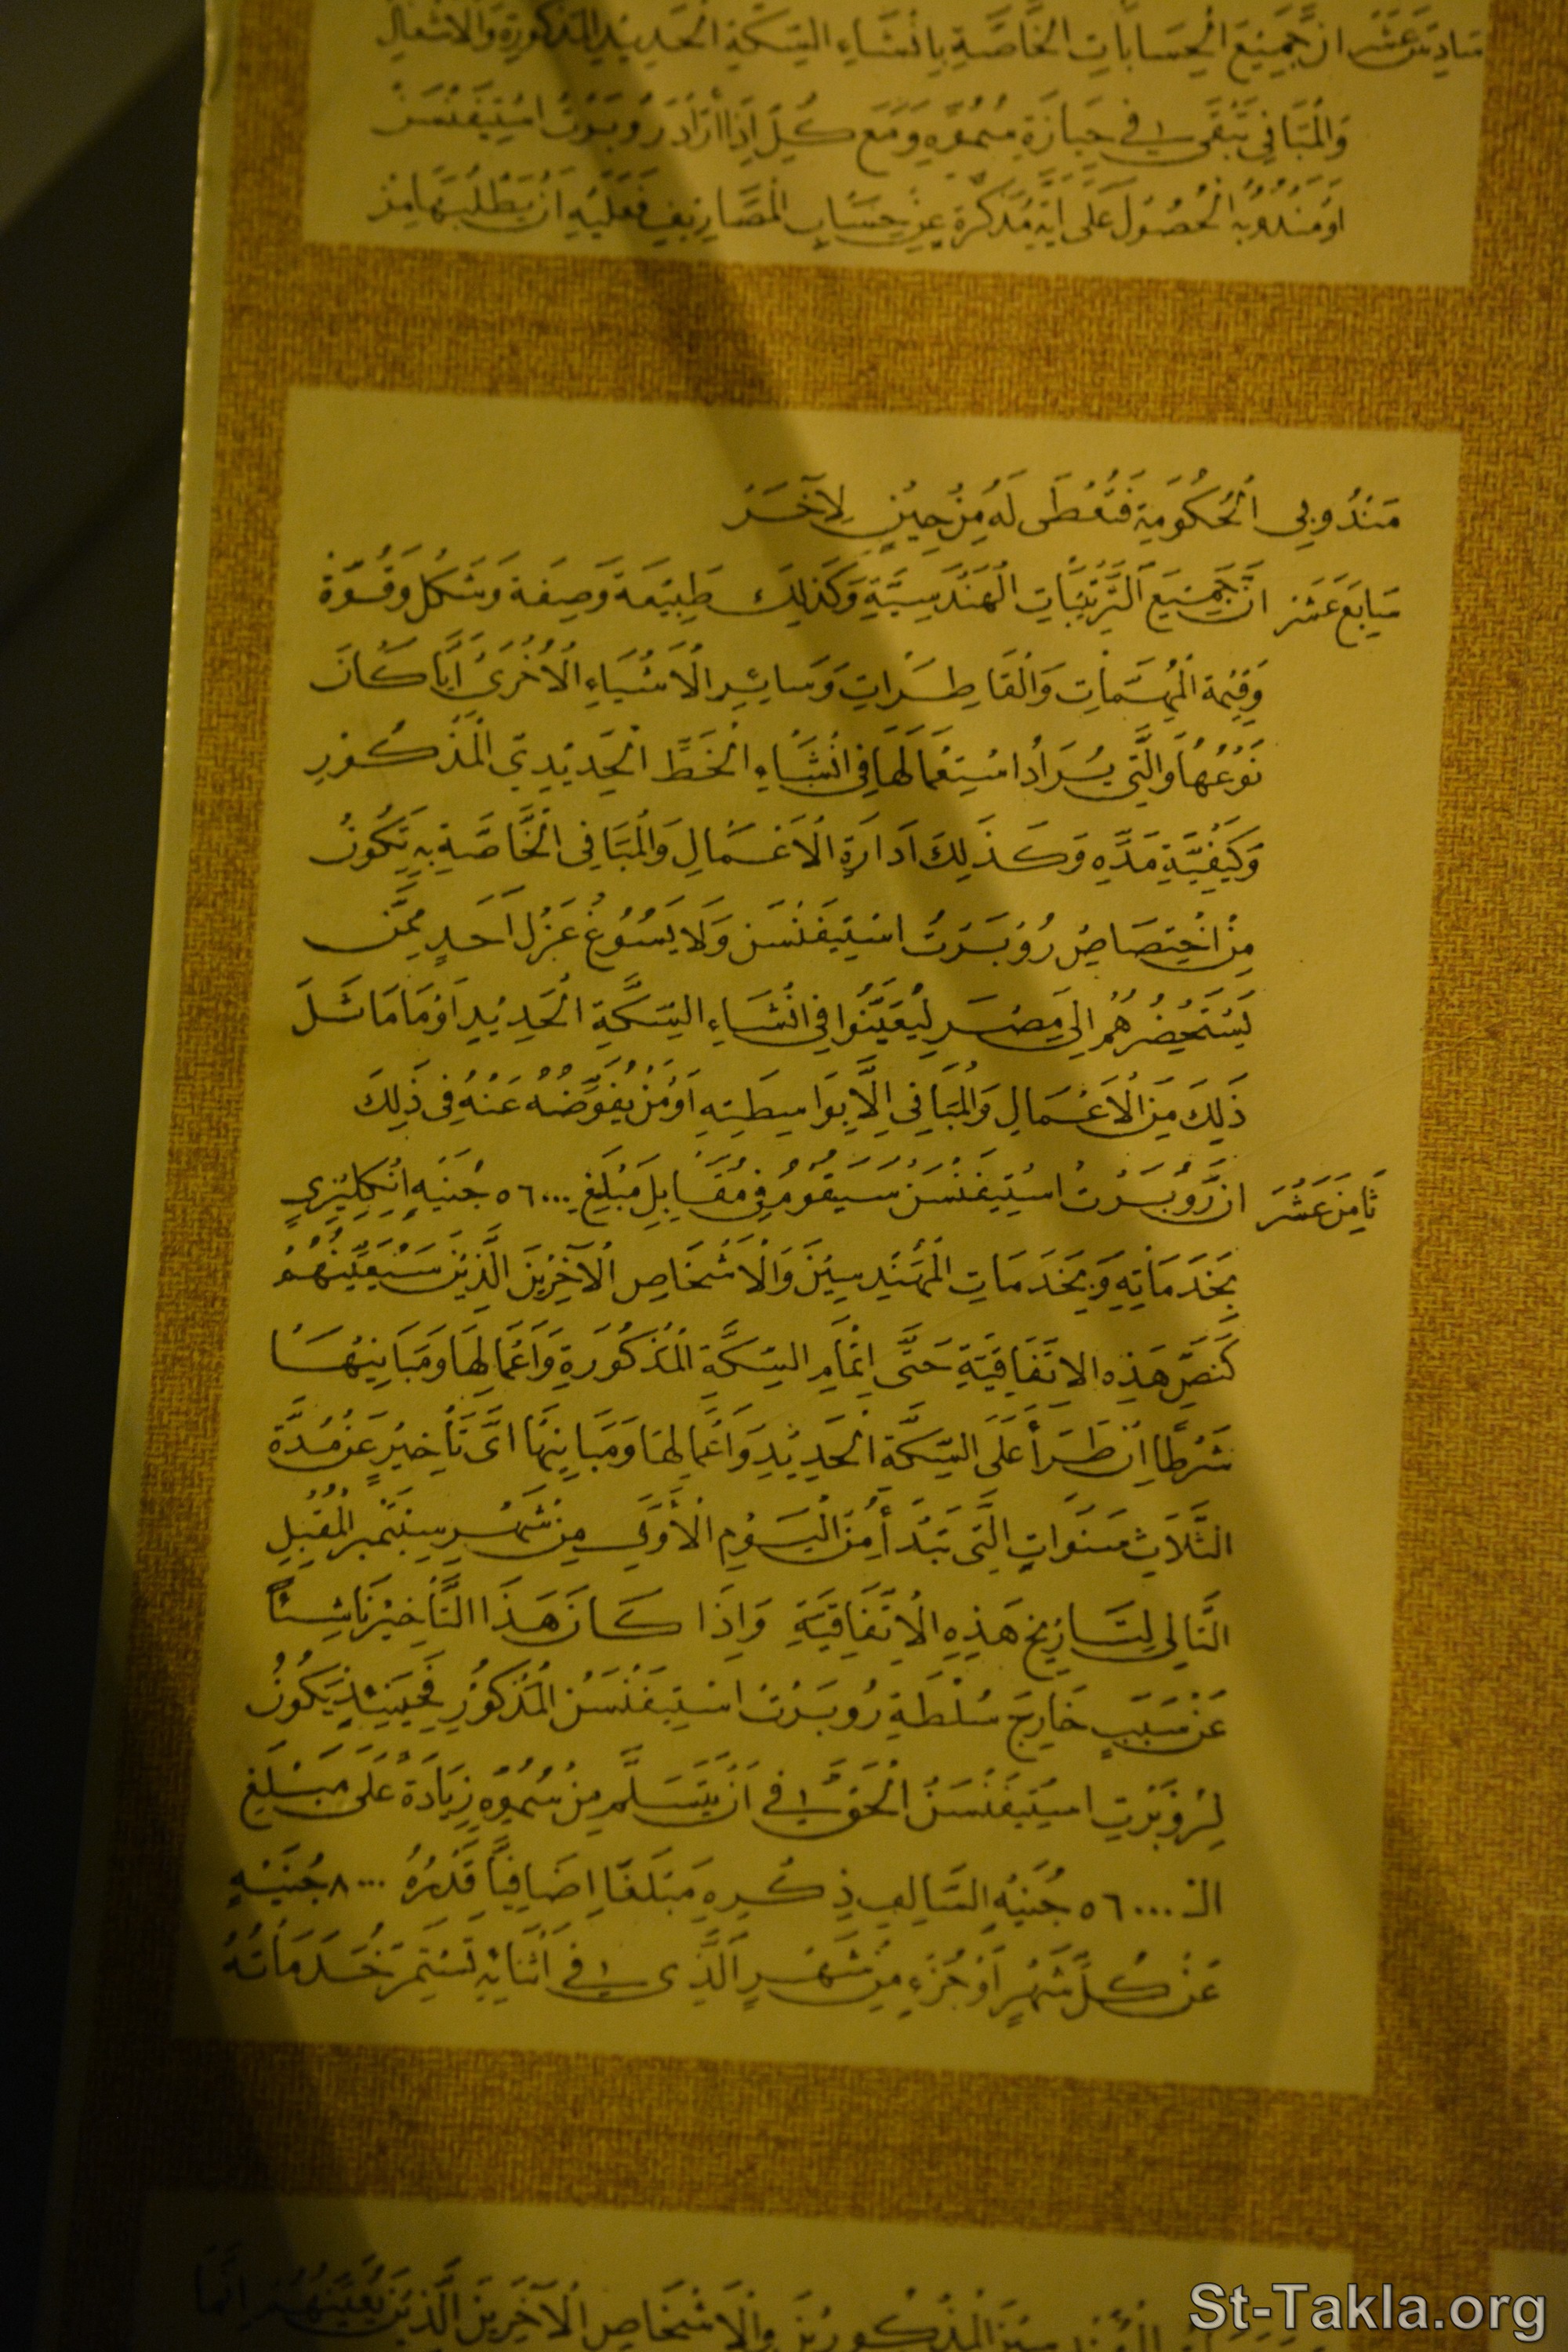 سَادِسَ عَشَر ان جَمِيْعَ الْحِسَابَاتِ الْخَاصَّةِ بِاِنْشَاءِ السِّكَّةِ الْحَدِيْدِ الْمَذْكُورَةِ وَالْاشْغَالِ
وَالْمَبَانِي تَبْقَى فِي حِيَازَةِ سُمُوِّهِ وَمَعَ كُلٍّ اِذَا اَرَادَ رُوبَرْتْ اسْتِيفَنْسَنْ
اَوْ مَنْدُوبُهُ الْحُصُولَ عَلَى اَيَّةِ مُذَكِّرَةٍ عَنْ حِسَابِ الْمَصَارِيفِ فَعَلَيْهِ اَنْ يَطْلُبَهَا مِنْ
مَنْدُوبِي الْحُكُومَةِ فَتُعْطَى لَهُ مِنْ حِيْنٍ لِآخَرْ
سَابِعَ عَشَرْ انَّ جَمِيْعَ التَّرْتِيْبَاتِ الْهَنْدَسِيَّةِ وَكَذَلِكَ طَبِيْعَةَ وَصِفَةَ وَشَكْلَ وَقُوَّةَ
وَقِيْمَةَ الْمُهِمَّاتِ وَالْقَاطِرَاتِ وَسَائِرِ الْاَشْيَاءِ الْاُخْرَى اَيًّا كَانَ
نَوْعُهَا وَالَّتِي يُرَادُ اسْتِعْمَالُهَا فِي انْشَاءِ الْخَطِّ الْحَدِيْدِيِّ الْمَذْكُورِ
وَكَيْفِيَّةِ مَدِّهِ وَكَذَلِكَ اِدَارَةِ الْاَعْمَالِ وَالْمَبَانِي الْخَاصَّةِ بِهِ تَكُونُ
مِنْ اخْتِصَاصِ رُوبَرْتْ اسْتِيفَنْسَنْ وَلَا يَسُوْغُ عَزْلُ اَحَدٍ مِمَّنْ
يَسْتَحْضِرُهُمْ اِلَى مِصْرَ لِيُعَيَّنُوا فِي انْشَاءِ السِّكَّةِ الْحَدِيْدِ اَوْ مَا مَاثَلَ
ذَلِكَ مِنَ الْاَعْمَالِ وَالْمَبَانِي اِلَّا بِوَاسِطَتِهِ اَوْ مَنْ يُفَوِّضُهُ عَنْهُ فِي ذَلِكَ
ثَامِنَ عَشَرَ انَّ رُوبَرْتْ اسْتِيفَنْسَنْ سَيَقُوْمُ فِي مُقَابِلِ مَبْلَغِ ٥٦٠٠٠ جُنَيْهٍ اِنْكِلِيْزِيٍّ
بِخَدَمَاتِهِ وَبِخَدَمَاتِ الْمُهَنْدِسِيْنَ وَالْاَشْخَاصِ الْآخَرِيْنَ الَّذِيْنَ سَيُعَيِّنُهُمْ
كَنَصِّ هَذِهِ الِاتِّفَاقِيَّةِ حَتَّى اِتْمَامِ السِّكَّةِ الْمَذْكُورَةِ وَاَعْمَالِهَا وَمَبَانِيْهَا
شَرْطًا اِنْ طَرَأَ عَلَى السِّكَّةِ الْحَدِيْدِ وَاَعْمَالِهَا وَمَبَانِيْهَا اَيُّ تَأْخِيْرٍ عَنْ مُدَّةِ
الثَّلَاثِ سَنَوَاتٍ الَّتِي تَبْتَدَأُ مِنَ الْيَوْمِ الْاَوَّلِ مِنْ شَهْرِ سِبْتَمْبَرِ الْمُقْبِلِ
التَّالِي لِتَارِيْخِ هَذِهِ الْاِتِّفَاقِيَّةِ وَاِذَا كَانَ هَذَا التَّأْخِيْرُ نَاشِئًا
عَنْ سَبَبٍ خَارِجَ سُلْطَةِ رُوبَرْتْ اسْتِيفَنْسَنْ الْمَذْكُوْرِ فَحِيْنَئِذٍ يَكُونُ
لِرُوبَرْتِ اسْتِيفَنْسَنْ الْحَقُّ فِي اَنْ يَتَسَلَّمَ مِنْ سُمُوِّهِ زِيَادَةً عَلَى مَبْلَغِ
الـ ٥٦٠٠٠ جُنَيْهِ السَّالِفِ ذِكْرِهِ مَبْلَغًا اِضَافِيًّا قَدْرُهُ ٨٠٠٠ جُنَيْهٍ
عَنْ كُلِّ شَهْرٍ اَوْ جُزْءٍ مِنْ شَهْرٍ الَّذِي فِي اَثْنَائِهِ تَسْتَمِرُّ خَدَمَاتُهُ
الْمَذْكُورِيْنَ وَالْاَشْخَاصِ الْآخَرِيْنَ الَّذِيْنَ يُعَيِّنُهُمْ
St-Takla.org